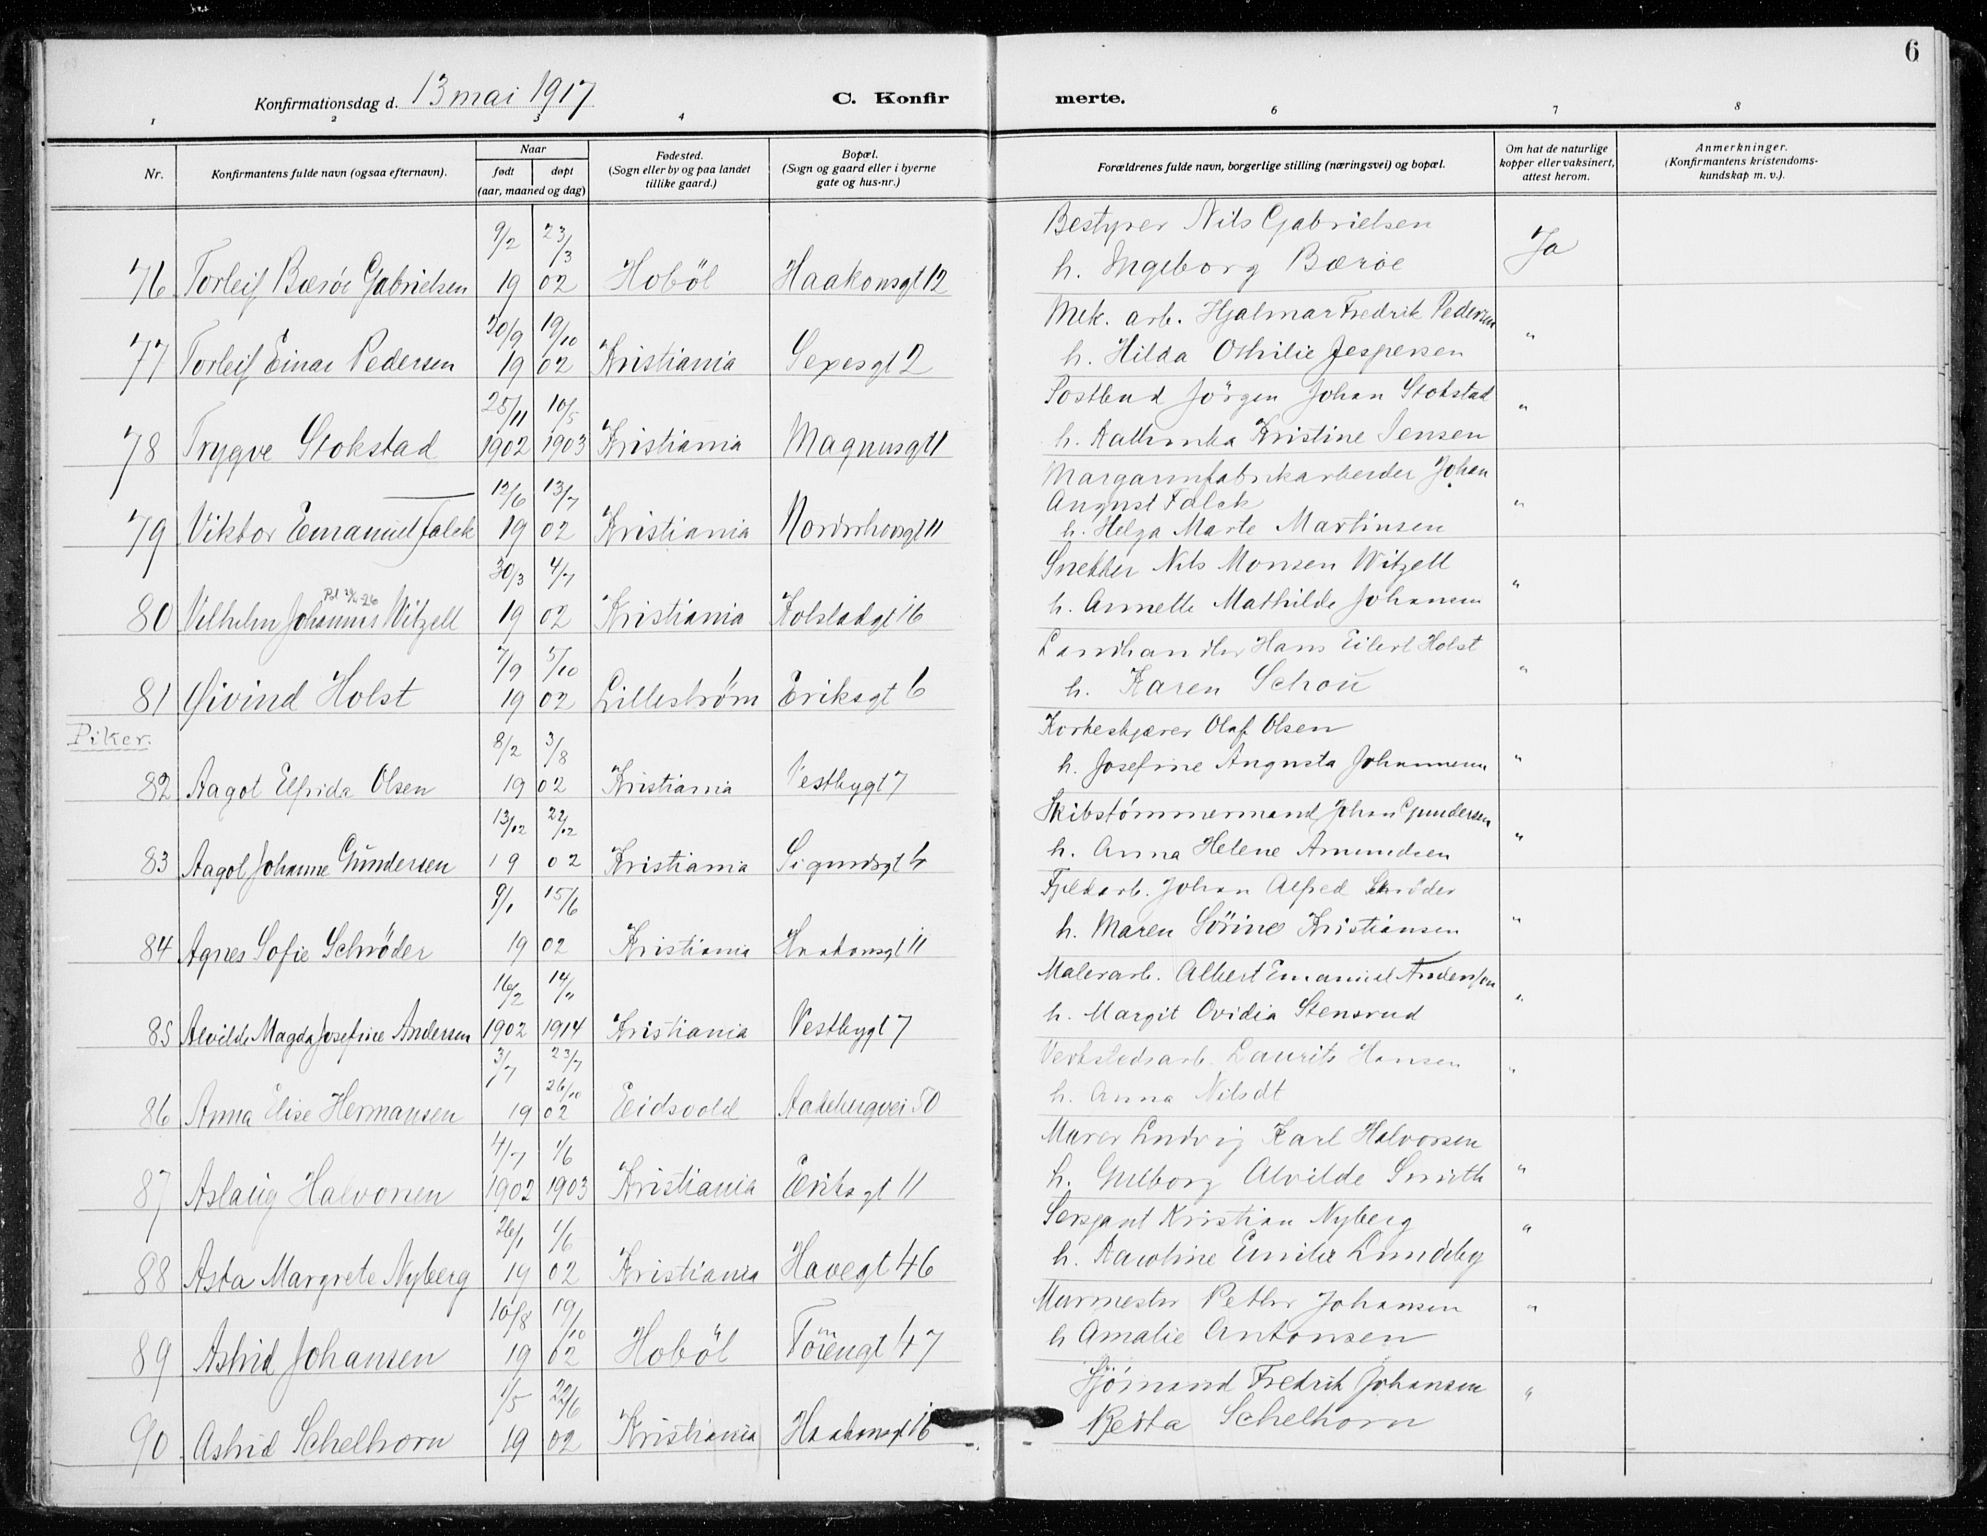 6
Konfirmationsdag d. 13 mai 1917
C. Konfirmerte.
1 2 3 4 6 7 8
Nr.
Konfirmantens fulde navn (ogsaa efternavn).
Naar
født døpt
(aar, maaned og dag)
Fødested.
(Sogn eller by og paa landet
tillike gaard.)
Bopæl.
(Sogn og gaard eller i byerne
gate og hus-nr.)
Forældrenes fulde navn, borgerlige stilling (næringsvei) og bopæl.
Om hat de naturlige
kopper eller vaksinert,
attest herom.
Anmerkninger.
(Konfirmantens kristendoms-
kundskap m. v.).
9/2 23/3 Bestyrer Nils Gabrielsen
76 Torleif Bærøe Gabrielsen 19 02 Hoböl Haakonsgt 12 h. Ingeborg Bærøe Ja
19/10 Mek. arb. Hjalmar Fredrik Pedersen
77 Torleif Einar Pedersen 19 02 Kristiania Sexesgt 2 h. Hilda Othilie Jespersen "
25/11 10/5 Postbud Jörgen Johan Stokstad
78 Trygve Stokstad 1902 1903 Kristiania Magnusgt 11 h. Kathinka Kristine Jensen "
12/6 13/7 Margarinfabrikarbeider Johan
August Falck
79 Viktor Emanuel Falck 19 02 Kristiania Nordrehovsgt 11 h. Helga Marte Martinsen "
30/3 4/7 Snekker Nils Monsen Witzell
80 Vilhelm Johannes Witzell 19 02 Kristiania Kolstadgt 16 h. Annette Mathilde Johansen "
7/9 5/10 Landhandler Hans Eilert Holst
81 Øivind Holst 19 02 Lilleström Eriksgt 6 h. Karen Schou "
Piker.
8/2 3/8 Korkeskjærer Olaf Olsen
82 Aagot Elfrida Olsen 19 02 Kristiania Vestbygt 7 h. Josefine Augusta Johannesen "
13/02 22/02 Skibstømmermand Johan Gundersen
83 Aagot Johanne Gundersen 19 02 Kristiania Sigurdsgt 4 h. Anna Helene Amundsen "
9/1 15/6 Fjeldarb. Johan Alfred Schröder
84 Agnes Sofie Schröder 19 02 Kristiania Haakonsgt 11 h. Maren Sörine Kristiansen "
16/2 Malerarb. Albert Emanuel Andersson
85 Alvilde Magda Josefine Andersen 1902 1914 Kristiania Vestbygt 7 h. Margit Ovidia Stensrud "
3/7 23/7 Verkstedsarb. Laurits Hansen
26/10
86 Anna Elise Hermansen 19 02 Eidsvold Aakebergvei 50 h. Anna Nilsdt "
4/7 1/6 Murer Ludvig Karl Halvorsen
87 Aslaug Halvorsen 1902 1903 Kristiania Eriksgt 11 h. Guelborg Alvilde Smith "
26/1 1/6 Sersjant Kristian Nyberg
88 Asta Margrete Nyberg 19 02 Kristiania Havegt 46 h. Karoline Emilie Lundeby "
10/8 19/10 Murmester Petter Johansen
89 Astrid Johansen 19 02 Hoböl Tömengt 47 h Amalie Antonsen "
1/5 22/6 Sjömand Fredrik Johansen
90 Astrid Schelhorn 19 02 Kristiania Haakonsgt 16 Berta Schelhorn "